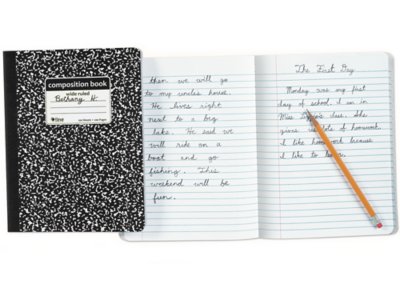 composition book
wide ruled
Bethany H.
then we will go
to my uncles house.
He lives right
next to a big
lake. He said we
will ride on a
boat and go
fishing. This
weekend will be
fun.
The First Day
Monday was my first
day of school. I am in
Miss class. She
gives us lots of homework.
I like homework because
I like to learn.